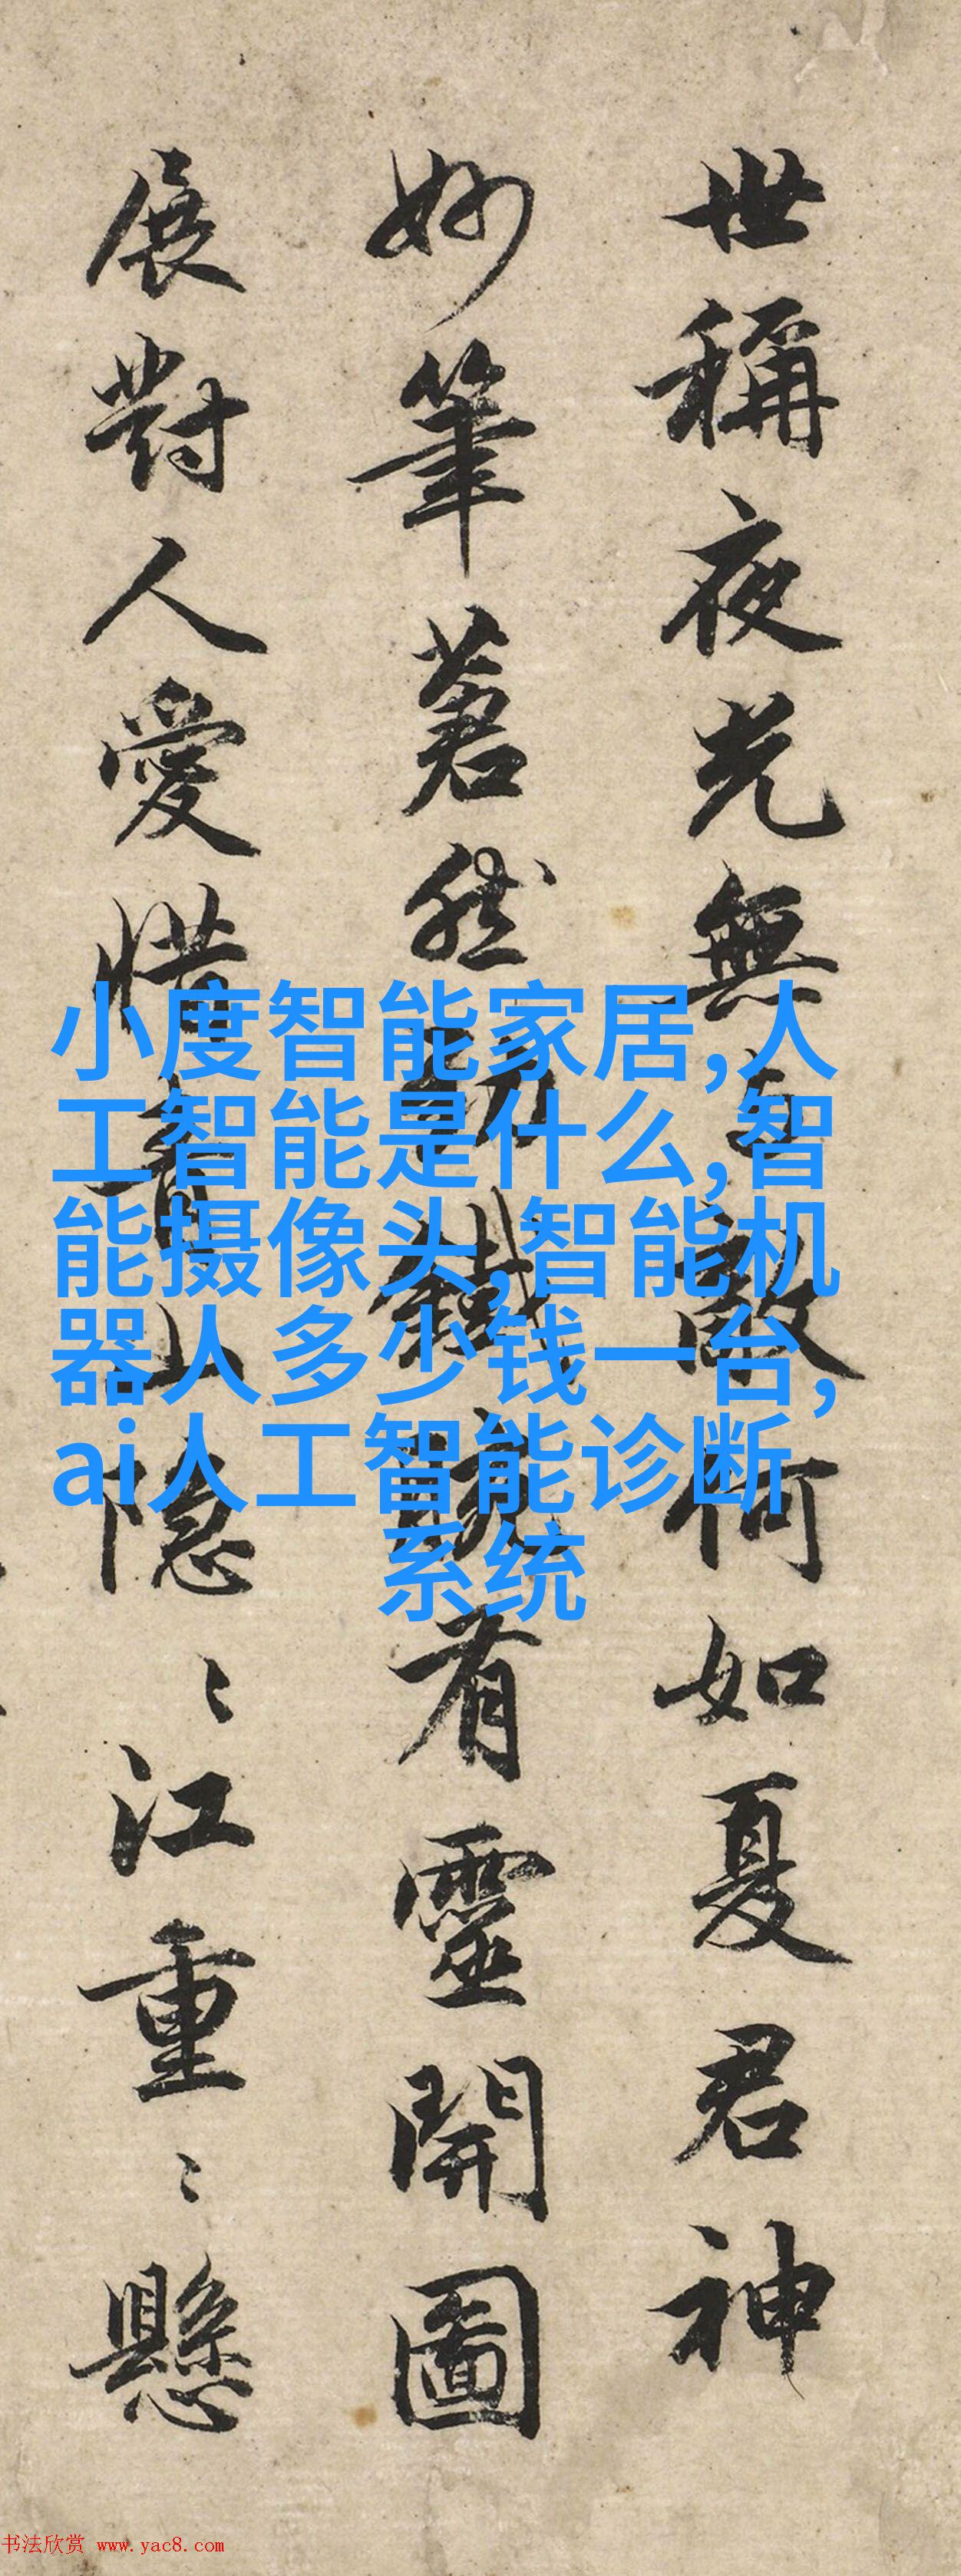 世稱夜光無與敵何如夏君神
妙筆蒼然鐵有靈開圖
展對人愛惜青山隱〻江重〻懸
小度智能家居,人
工智能是什么,智
能摄像头,智能机
器人多少钱一台,
ai人工智能诊断
系统
书法欣赏 www.yac8.com